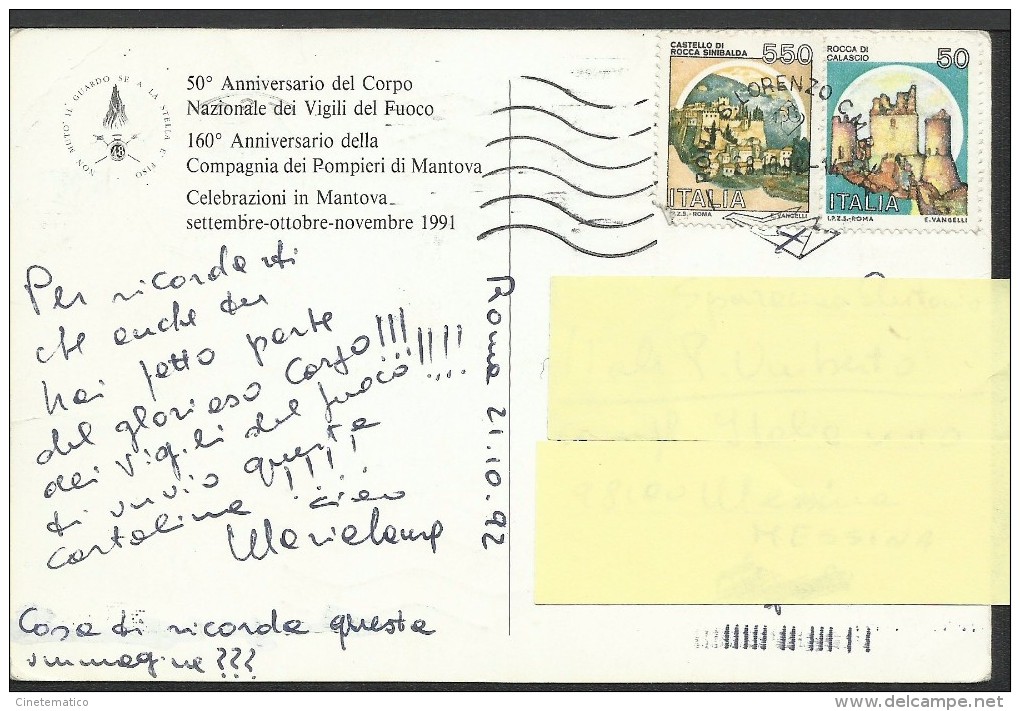 NON MUTÒ IL GUARDO SE A LA STELLA È FISO
50° Anniversario del Corpo
Nazionale dei Vigili del Fuoco
160° Anniversario della
Compagnia dei Pompieri di Mantova
Celebrazioni in Mantova
settembre-ottobre-novembre 1991
CASTELLO DI
ROCCA SINIBALDA
550
ITALIA
I.P.Z.S.-ROMA E. VANGELLI
ROCCA DI
CALASCIO
50
ITALIA
I.P.Z.S.-ROMA E. VANGELLI
S. LORENZO
Per ricordarti
che anche tu
hai fatto parte
del glorioso Corpo!!!
dei Vigili del fuoco!!!!
ti invio questa
cartolina!!!!
ciao
Roma 21.10.92
Cosa ti ricorda questa
immagine???
Cinetematico
delcampe.net